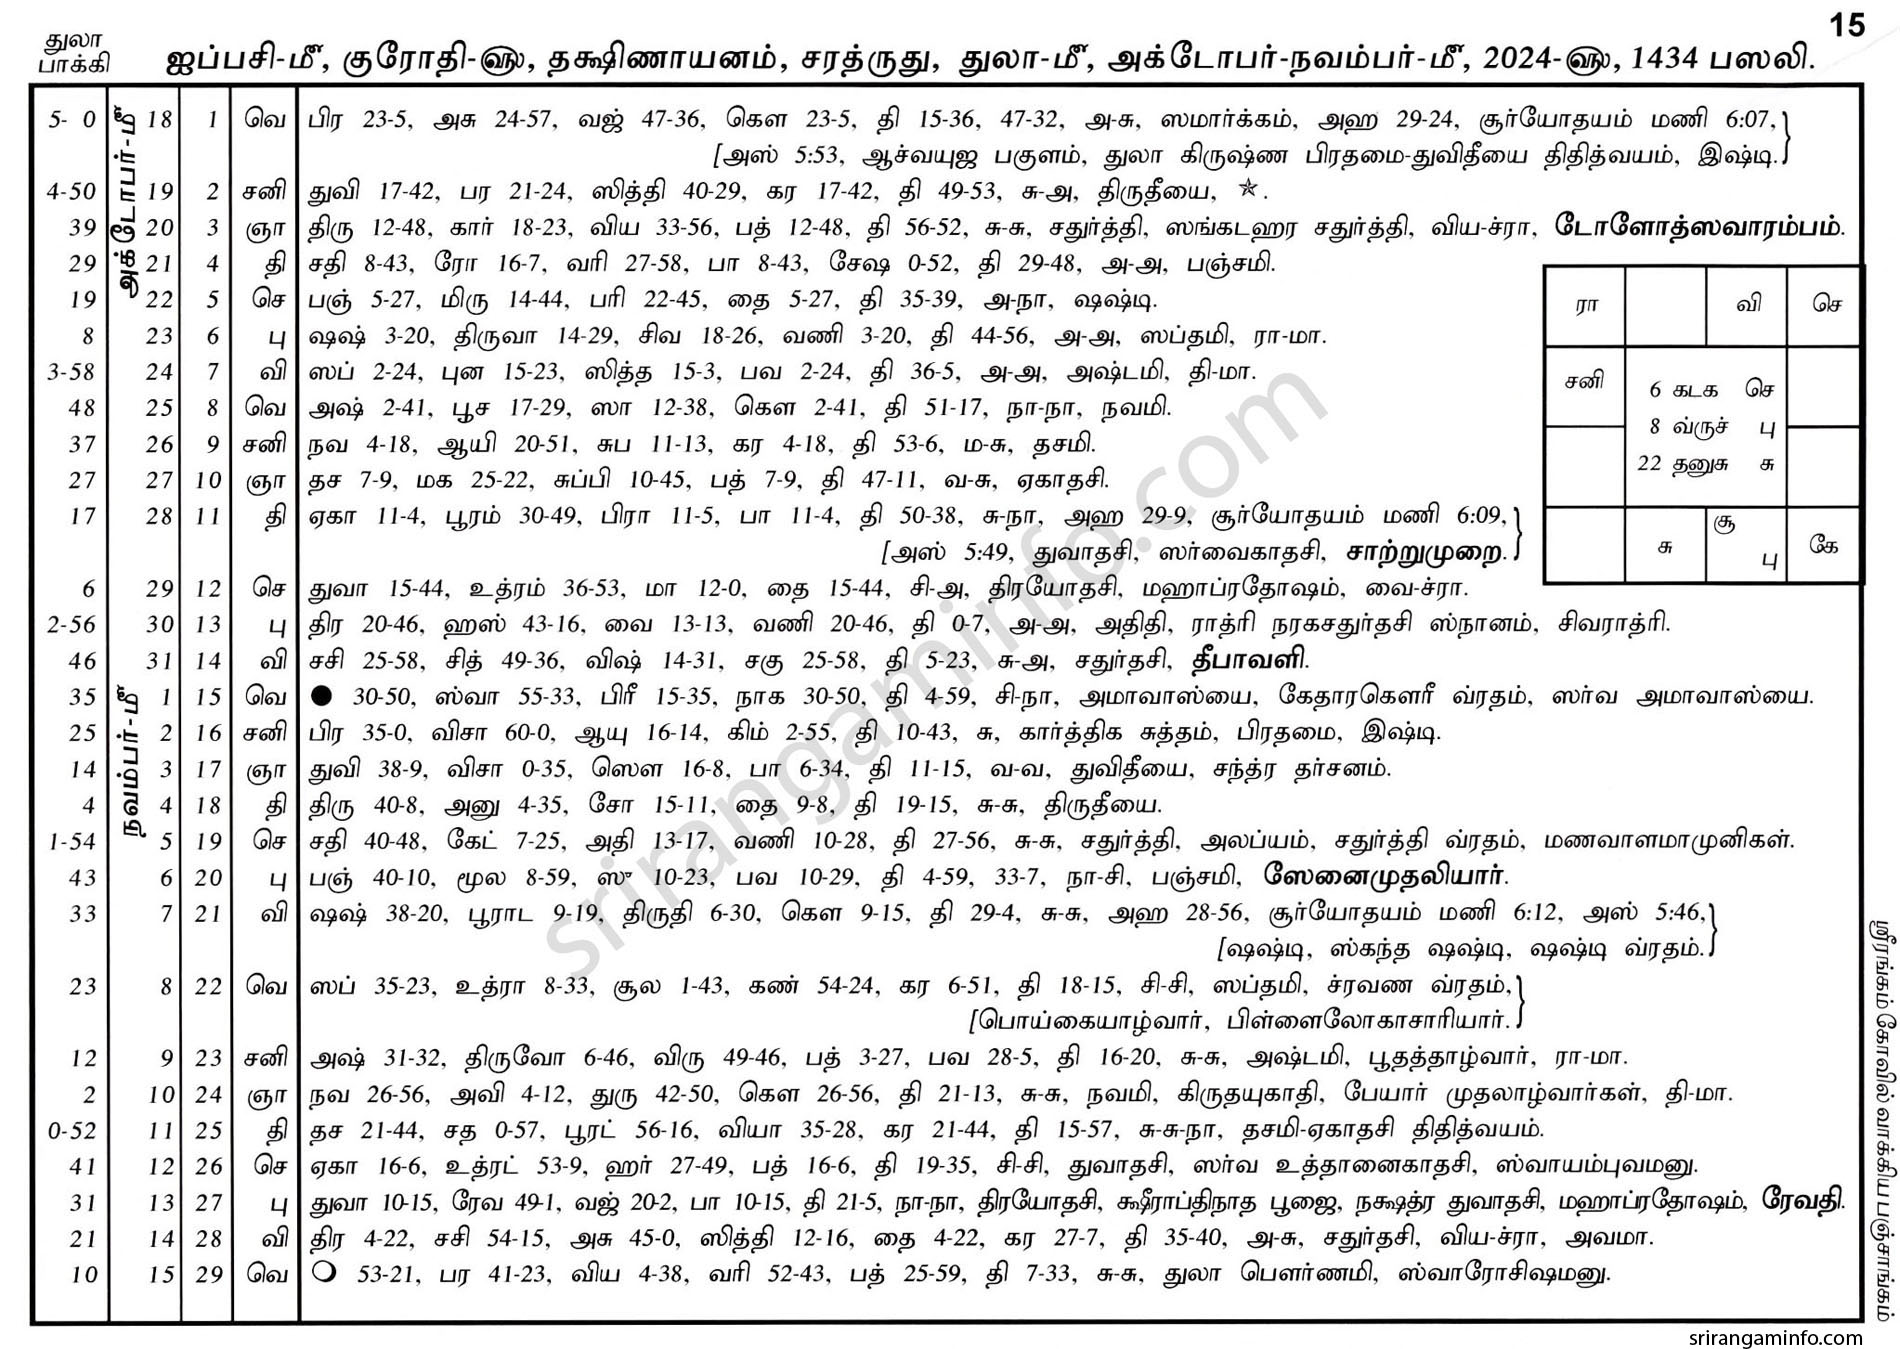 15
துலா
பாக்கி
ஐப்பசி-மீ, குரோதி-௵, தக்ஷிணாயனம், சரத்ருது, துலா-மீ, அக்டோபர்-நவம்பர்-மீ, 2024-௵, 1434 பஸலி.
அக்டோபர்-மீ
5- 0 18 1 வெ பிர 23-5, அசு 24-57, வஜ் 47-36, கௌ 23-5, தி 15-36, 47-32, அ-சு, ஸமார்க்கம், அஹ 29-24, சூர்யோதயம் மணி 6:07,}
[அஸ் 5:53, ஆச்வயுஜ பகுளம், துலா கிருஷ்ண பிரதமை-துவிதீயை திதித்வயம், இஷ்டி.
4-50 19 2 சனி துவி 17-42, பர 21-24, ஸித்தி 40-29, கர 17-42, தி 49-53, சு-அ, திருதீயை, ☆.
39 20 3 ஞா திரு 12-48, கார் 18-23, விய 33-56, பத் 12-48, தி 56-52, சு-சு, சதுர்த்தி, ஸங்கடஹர சதுர்த்தி, விய-ச்ரா, டோளோத்ஸவாரம்பம்.
29 21 4 தி சதி 8-43, ரோ 16-7, வரி 27-58, பா 8-43, சேஷ 0-52, தி 29-48, அ-அ, பஞ்சமி.
19 22 5 செ பஞ் 5-27, மிரு 14-44, பரி 22-45, தை 5-27, தி 35-39, அ-நா, ஷஷ்டி.
8 23 6 பு ஷஷ் 3-20, திருவா 14-29, சிவ 18-26, வணி 3-20, தி 44-56, அ-அ, ஸப்தமி, ரா-மா.
3-58 24 7 வி ஸப் 2-24, புன 15-23, ஸித்த 15-3, பவ 2-24, தி 36-5, அ-அ, அஷ்டமி, தி-மா.
48 25 8 வெ அஷ் 2-41, பூச 17-29, ஸா 12-38, கௌ 2-41, தி 51-17, நா-நா, நவமி.
37 26 9 சனி நவ 4-18, ஆயி 20-51, சுப 11-13, கர 4-18, தி 53-6, ம-சு, தசமி.
27 27 10 ஞா தச 7-9, மக 25-22, சுப்பி 10-45, பத் 7-9, தி 47-11, வ-சு, ஏகாதசி.
17 28 11 தி ஏகா 11-4, பூரம் 30-49, பிரா 11-5, பா 11-4, தி 50-38, சு-நா, அஹ 29-9, சூர்யோதயம் மணி 6:09,}
[அஸ் 5:49, துவாதசி, ஸர்வைகாதசி, சாற்றுமுறை.
6 29 12 செ துவா 15-44, உத்ரம் 36-53, மா 12-0, தை 15-44, சி-அ, திரயோதசி, மஹாப்ரதோஷம், வை-ச்ரா.
2-56 30 13 பு திர 20-46, ஹஸ் 43-16, வை 13-13, வணி 20-46, தி 0-7, அ-அ, அதிதி, ராத்ரி நரகசதுர்தசி ஸ்நானம், சிவராத்ரி.
46 31 14 வி சசி 25-58, சித் 49-36, விஷ் 14-31, சகு 25-58, தி 5-23, சு-அ, சதுர்தசி, தீபாவளி.
நவம்பர்-மீ
35 1 15 வெ ● 30-50, ஸ்வா 55-33, பிரீ 15-35, நாக 30-50, தி 4-59, சி-நா, அமாவாஸ்யை, கேதாரகௌரீ வ்ரதம், ஸர்வ அமாவாஸ்யை.
25 2 16 சனி பிர 35-0, விசா 60-0, ஆயு 16-14, கிம் 2-55, தி 10-43, சு, கார்த்திக சுத்தம், பிரதமை, இஷ்டி.
14 3 17 ஞா துவி 38-9, விசா 0-35, ஸௌ 16-8, பா 6-34, தி 11-15, வ-வ, துவிதீயை, சந்த்ர தர்சனம்.
4 4 18 தி திரு 40-8, அனு 4-35, சோ 15-11, தை 9-8, தி 19-15, சு-சு, திருதீயை.
1-54 5 19 செ சதி 40-48, கேட் 7-25, அதி 13-17, வணி 10-28, தி 27-56, சு-சு, சதுர்த்தி, அலப்யம், சதுர்த்தி வ்ரதம், மணவாளமாமுனிகள்.
43 6 20 பு பஞ் 40-10, மூல 8-59, ஸு 10-23, பவ 10-29, தி 4-59, 33-7, நா-சி, பஞ்சமி, ஸேனைமுதலியார்.
33 7 21 வி ஷஷ் 38-20, பூராட 9-19, திருதி 6-30, கௌ 9-15, தி 29-4, சு-சு, அஹ 28-56, சூர்யோதயம் மணி 6:12, அஸ் 5:46,}
[ஷஷ்டி, ஸ்கந்த ஷஷ்டி, ஷஷ்டி வ்ரதம்.
23 8 22 வெ ஸப் 35-23, உத்ரா 8-33, சூல 1-43, கண் 54-24, கர 6-51, தி 18-15, சி-சி, ஸப்தமி, ச்ரவண வ்ரதம்,}
[பொய்கையாழ்வார், பிள்ளைலோகாசாரியார்.
12 9 23 சனி அஷ் 31-32, திருவோ 6-46, விரு 49-46, பத் 3-27, பவ 28-5, தி 16-20, சு-சு, அஷ்டமி, பூதத்தாழ்வார், ரா-மா.
2 10 24 ஞா நவ 26-56, அவி 4-12, துரு 42-50, கௌ 26-56, தி 21-13, சு-சு, நவமி, கிருதயுகாதி, பேயார் முதலாழ்வார்கள், தி-மா.
0-52 11 25 தி தச 21-44, சத 0-57, பூரட் 56-16, வியா 35-28, கர 21-44, தி 15-57, சு-சு-நா, தசமி-ஏகாதசி திதித்வயம்.
41 12 26 செ ஏகா 16-6, உத்ரட் 53-9, ஹர் 27-49, பத் 16-6, தி 19-35, சி-சி, துவாதசி, ஸர்வ உத்தானைகாதசி, ஸ்வாயம்புவமனு.
31 13 27 பு துவா 10-15, ரேவ 49-1, வஜ் 20-2, பா 10-15, தி 21-5, நா-நா, திரயோதசி, க்ஷீராப்திநாத பூஜை, நக்ஷத்ர துவாதசி, மஹாப்ரதோஷம், ரேவதி.
21 14 28 வி திர 4-22, சசி 54-15, அசு 45-0, ஸித்தி 12-16, தை 4-22, கர 27-7, தி 35-40, அ-சு, சதுர்தசி, விய-ச்ரா, அவமா.
10 15 29 வெ ○ 53-21, பர 41-23, விய 4-38, வரி 52-43, பத் 25-59, தி 7-33, சு-சு, துலா பௌர்ணமி, ஸ்வாரோசிஷமனு.
ரா வி செ
சனி
6 கடக செ
8 வ்ருச் பு
22 தனுசு சு
சு சூ பு கே
srirangaminfo.com
ஸ்ரீரங்கம் கோவில் வாக்கிய பஞ்சாங்கம்
srirangaminfo.com